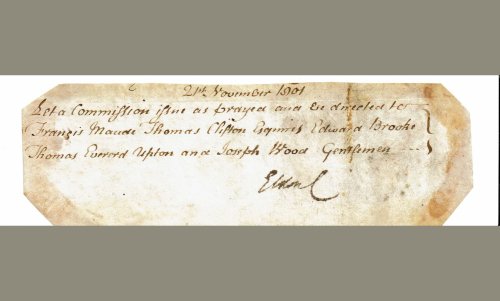 21st November 1801
Let a Commission issue as prayed and be directed to
Francis Maude Thomas Clifton Esquires Edward Brooke
Thomas Everard Upton and Joseph Wood Gentlemen
Eldon C